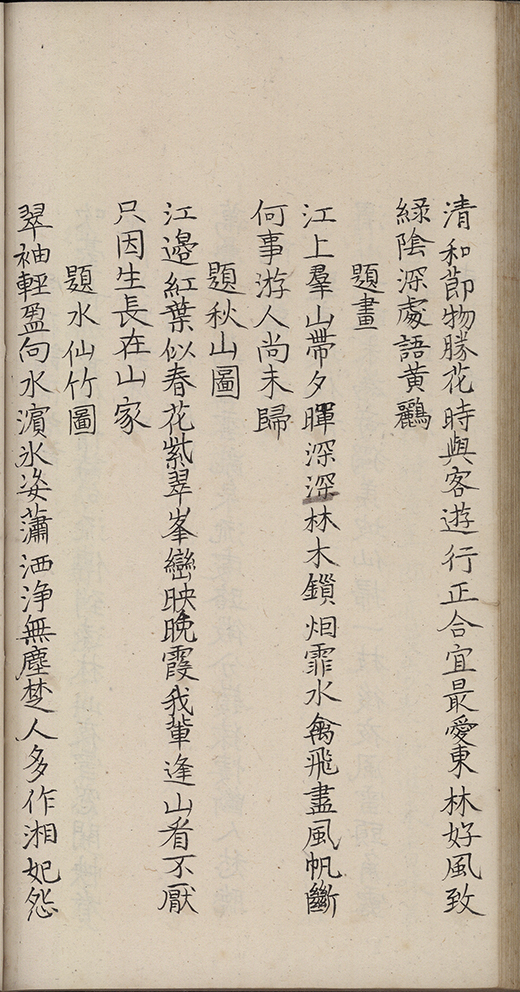 清和節物勝花時與客遊行正合宜最愛東林好風致
綠陰深處語黄鸝
題畫
江上羣山帶夕暉深深林木鎖烟霏水禽飛盡風帆斷
何事游人尚未歸
題秋山圖
江邊紅葉似春花紫翠峯巒映晚霞我輩逢山看不厭
只因生長在山家
題水仙竹圖
翠袖輕盈向水濵氷姿蕭洒浄無塵楚人多作湘妃怨